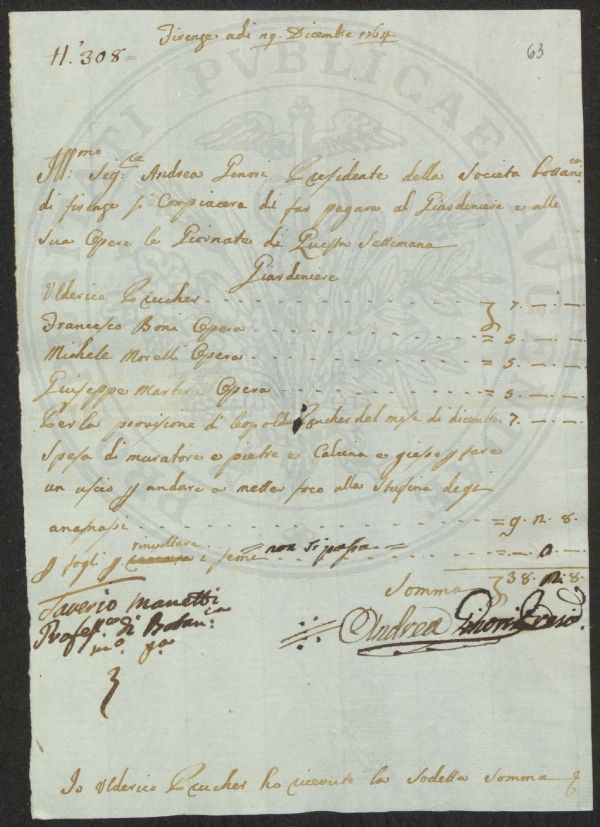 Firenze adi 29. Dicembre 1764.
N.º 308=
63
Ill:mo Sig:re Andrea Ginori Presidente della Societa bottanica
di firenze si Compiacera di far pagare al Giardiniere e alle
sua Opere le Giornate di Questa Settimana
Giardiniere
Ulderico Prucher - - - 7. — . —
Francesco Boni Opera - - - = 5. — . —
Michele Morelli Opera - - - = 5. — . —
Giuseppe Martini Opera - - - = 5. — . —
Per la provisione di leopoldo Prucher del mese di dicembre. 7. — . —
Spesa di muratore e pietre e Calcina e gieso p fare
un uscio p andare a metter foco alla Stufina degi
ananassi - - - = 9. 12. 8.
p fogli p rinvoltare i semi = non si passa = - - - 0. —
Somma 38. 12. 8.
Saverio Manetti
Profess.re di Botan:ca
m.º p.ª
Andrea Ginori Presid.
Io Ulderico Prucher ho ricevuto la sodetta somma